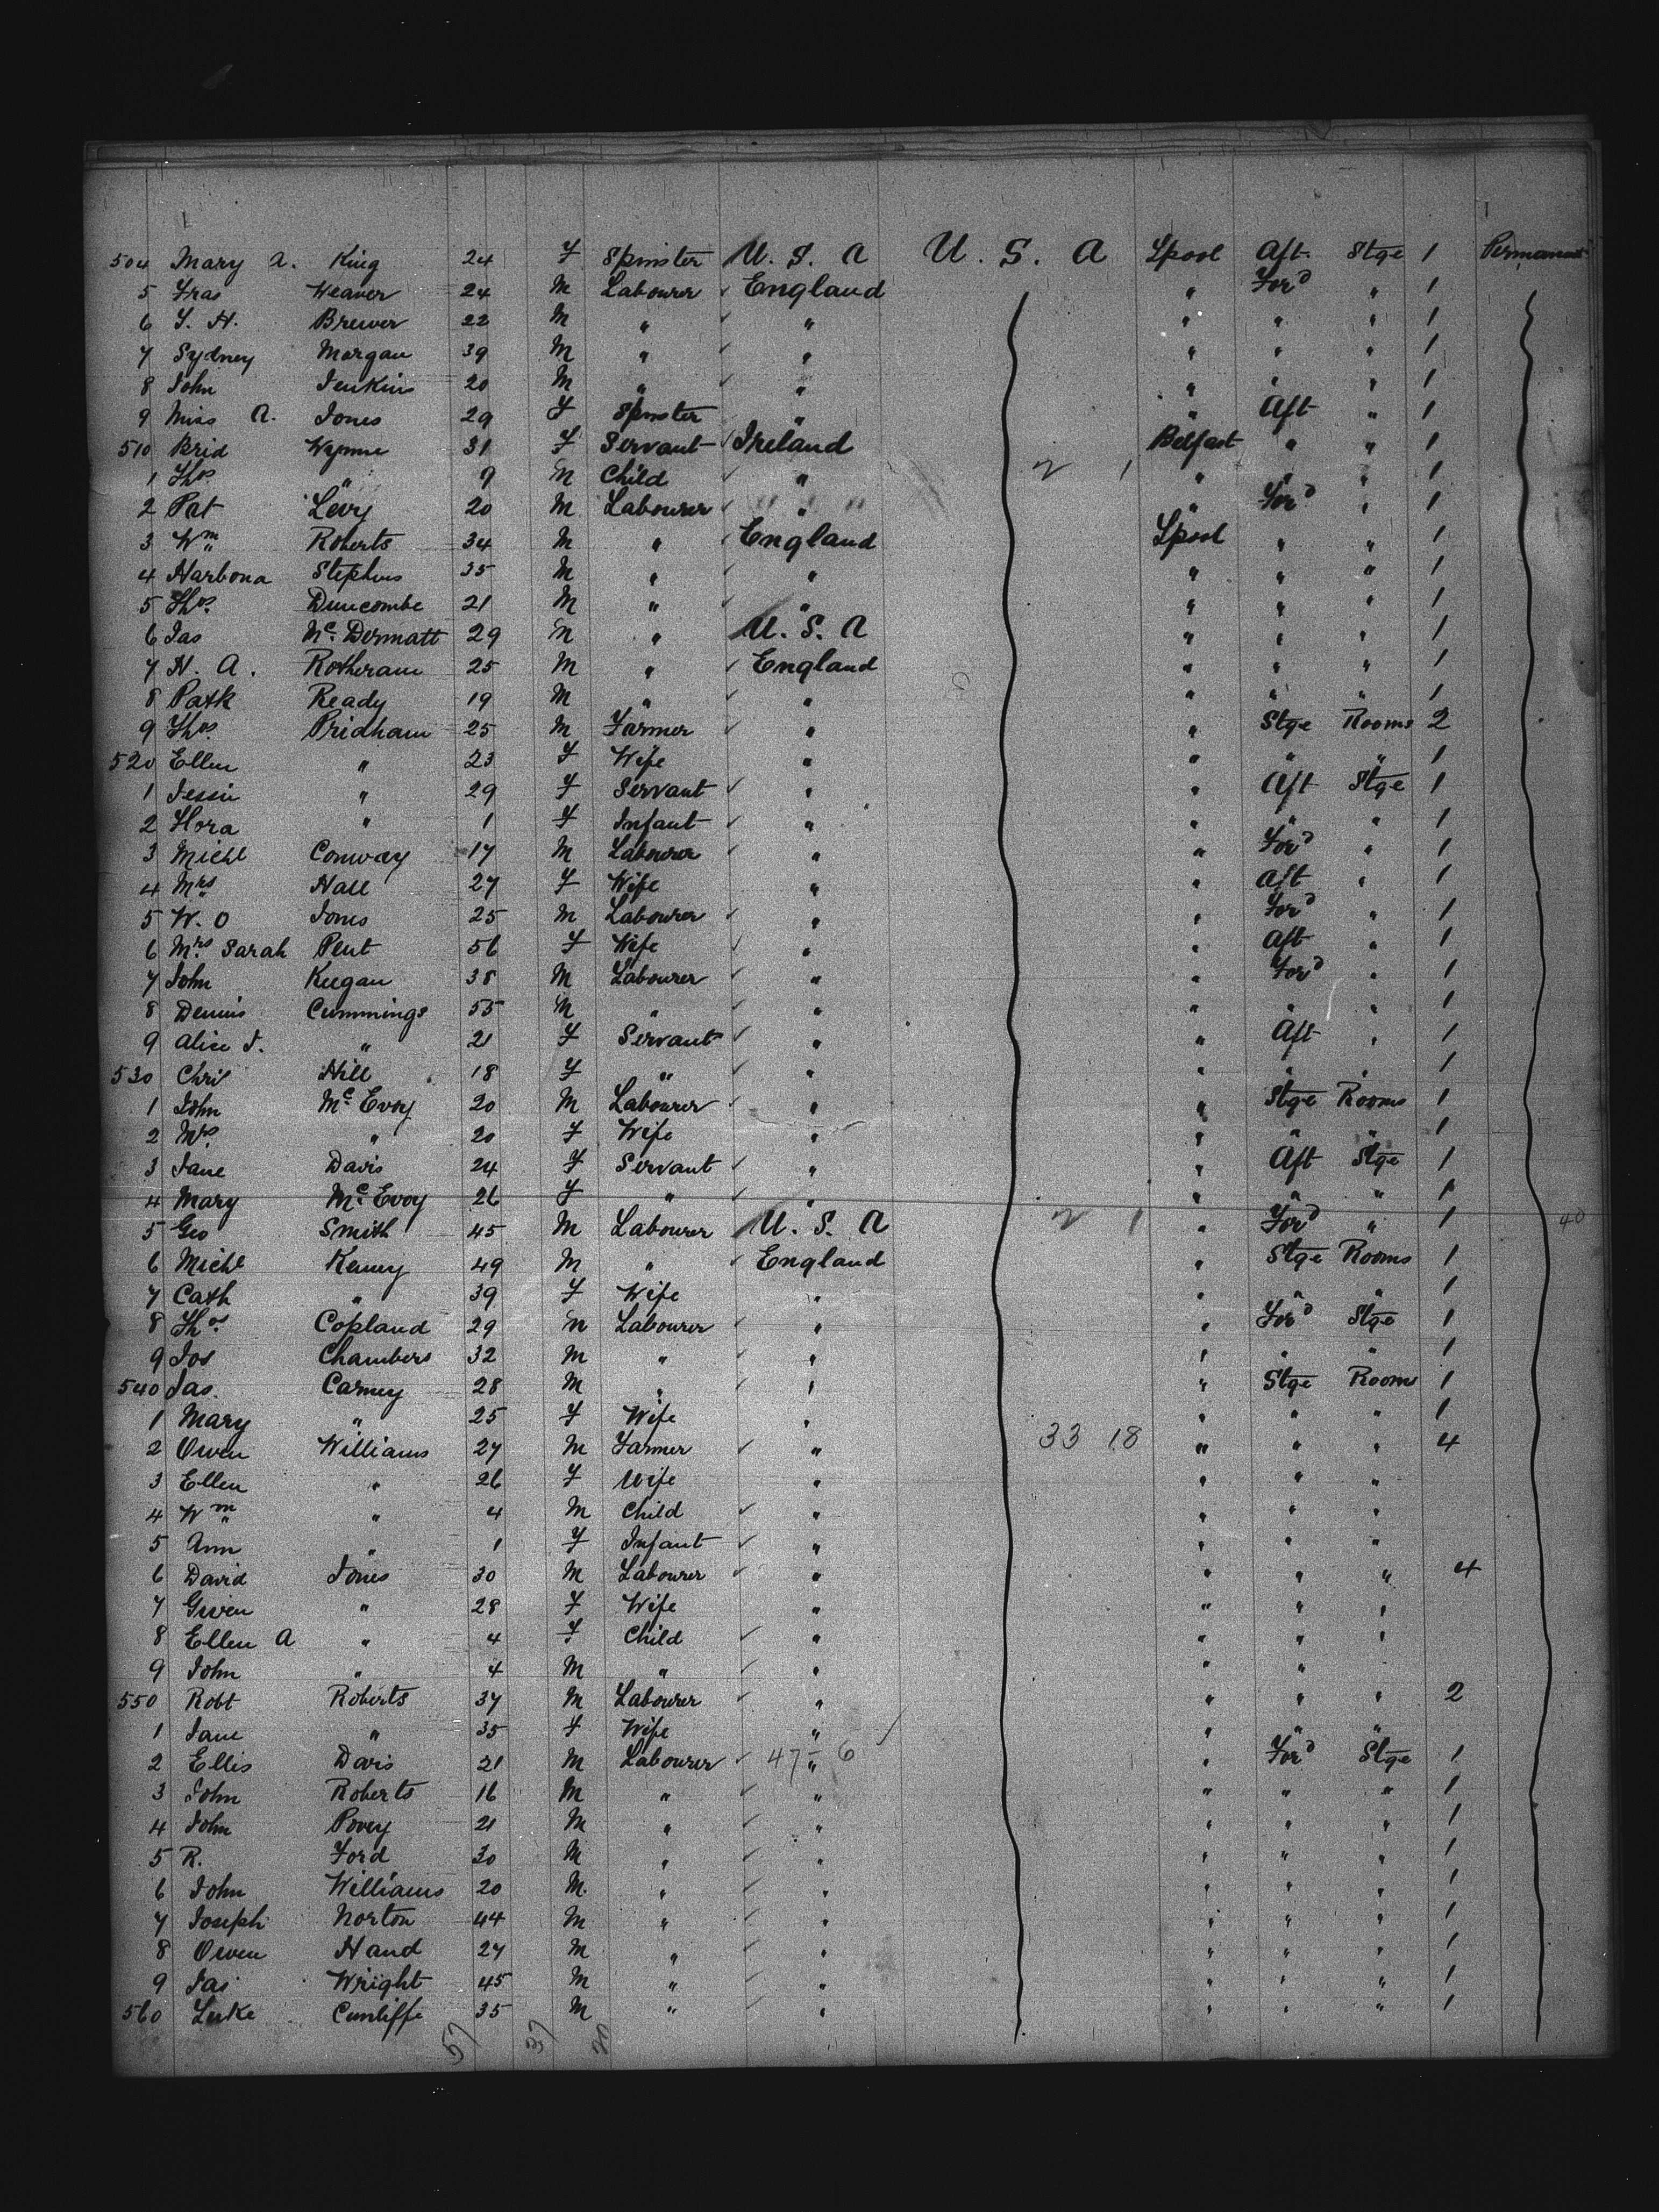 504 Mary A. King 24 F Spinster U. S. A U. S. A Lpool Aft Stge 1 Permanent
5 Fras Weaver 24 M Labourer England " Ford " 1
6 S. H. Brewer 22 M " " " " " 1
7 Sydney Morgan 39 M " " " " " 1
8 John Jenkins 20 M " " " " " 1
9 Miss A. Jones 29 F Spinster " " Aft " 1
510 Brid Wynne 31 F Servant Ireland Belfast " " 1
1 Thos " 9 M Child " 2 1 " " " 1
2 Pat Levy 20 M Labourer " " Ford " 1
3 Wm Roberts 34 M " England Lpool " " 1
4 Harbona Stephens 35 M " " " " " 1
5 Thos. Duncombe 21 M " " " " " 1
6 Jas Mc. Dermatt 29 M " U. S. A " " " 1
7 H. A. Rotheram 25 M " England " " " 1
8 Patk Ready 19 M " " " " " 1
9 Thos. Pridham 25 M Farmer " " Stge Rooms 2
520 Ellen " 23 F Wife " " " " 1
1 Jessie " 29 F Servant " " Aft Stge 1
2 Flora " 1 F Infant " " " " 1
3 Michl Conway 17 M Labourer " " Ford " 1
4 Mrs Hall 27 F Wife " " Aft " 1
5 W. O Jones 25 M Labourer " " Ford " 1
6 Mrs Sarah Pent 56 F Wife " " Aft " 1
7 John Keegan 38 M Labourer " " Ford " 1
8 Dennis Cummings 55 M " " " " " 1
9 Alice J. " 21 F Servant " " Aft " 1
530 Chris Hill 18 F " " " " " 1
1 John Mc Evoy 20 M Labourer " " Stge Rooms 1
2 Mrs. " 20 F Wife " " " " 1
3 Jane Davis 24 F Servant " " Aft Stge 1
4 Mary Mc. Evoy 26 F " " " " " 1
5 Geo Smith 45 M Labourer U. S. A 2 1 " Ford " 1 40
6 Michl Kenny 49 M " England " Stge Rooms 1
7 Cath " 39 F Wife " " " " 1
8 Thos Copland 29 M Labourer " " Ford Stge 1
9 Jos Chambers 32 M " " " " " 1
540 Jas. Carney 28 M " " " Stge Rooms 1
1 Mary " 25 F Wife " " " " 1
2 Owen Williams 27 M Farmer " 33 18 " " " 4
3 Ellen " 26 F Wife " " " "
4 Wm " 4 M Child " " " "
5 Ann " 1 F Infant " " " "
6 David Jones 30 M Labourer " " " " 4
7 Gwen " 28 F Wife " " " "
8 Ellen A " 4 F Child " " " "
9 John " 4 M " " " "
550 Robt Roberts 37 M Labourer " " " " 2
1 Jane " 35 F Wife " " " "
2 Ellis Davis 21 M Labourer 47 " 6 " Ford Stge 1
3 John Roberts 16 M " " " " " 1
4 John Povey 21 M " " " " " 1
5 R. Ford 30 M " " " " " 1
6 John Williams 20 M. " " " " " 1
7 Joseph Norton 44 M " " " " " 1
8 Owen Hand 27 M " " " " " 1
9 Jas Wright 45 M " " " " " 1
560 Luke Cunliffe 35 M " " " " " 1
57 37 20